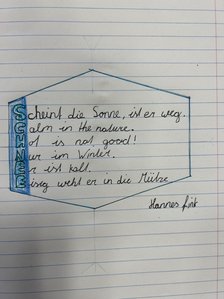 Scheint die Sonne, ist er weg.
Calm in the nature.
Hot is not good!
Nur im Winter.
Er ist kalt.
Eisig weht er in die Mütze
Hannes